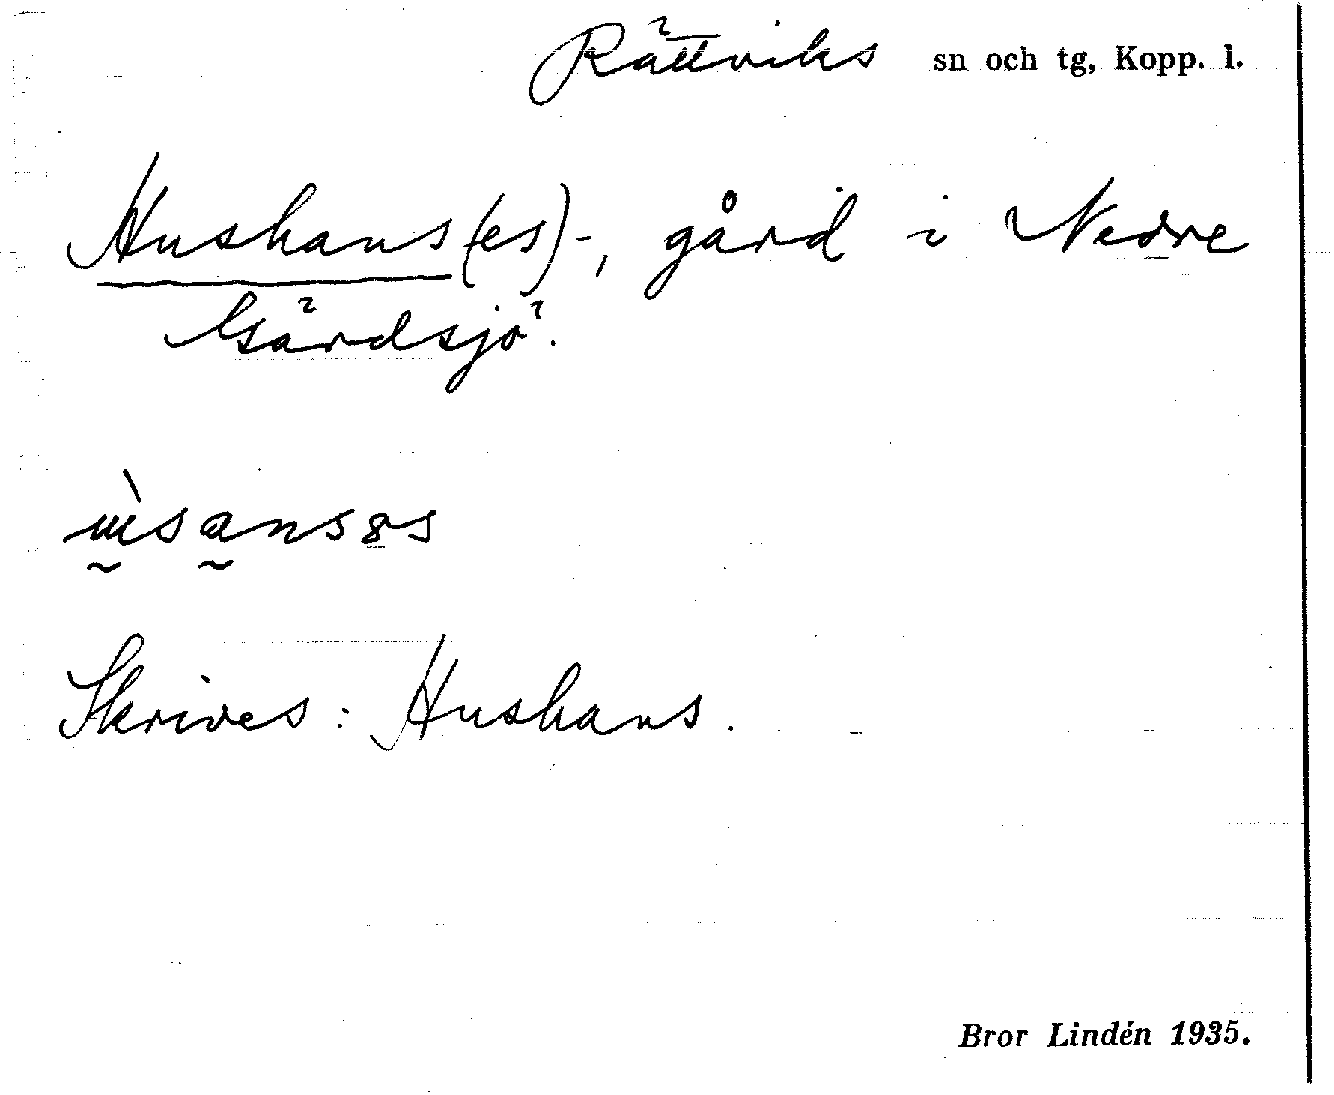 Rättviks sn och tg, Kopp. l.
Hushans(es)-, gård i Nedre
Gärdsjö.
Skrives: Hushans.
Bror Lindén 1935.